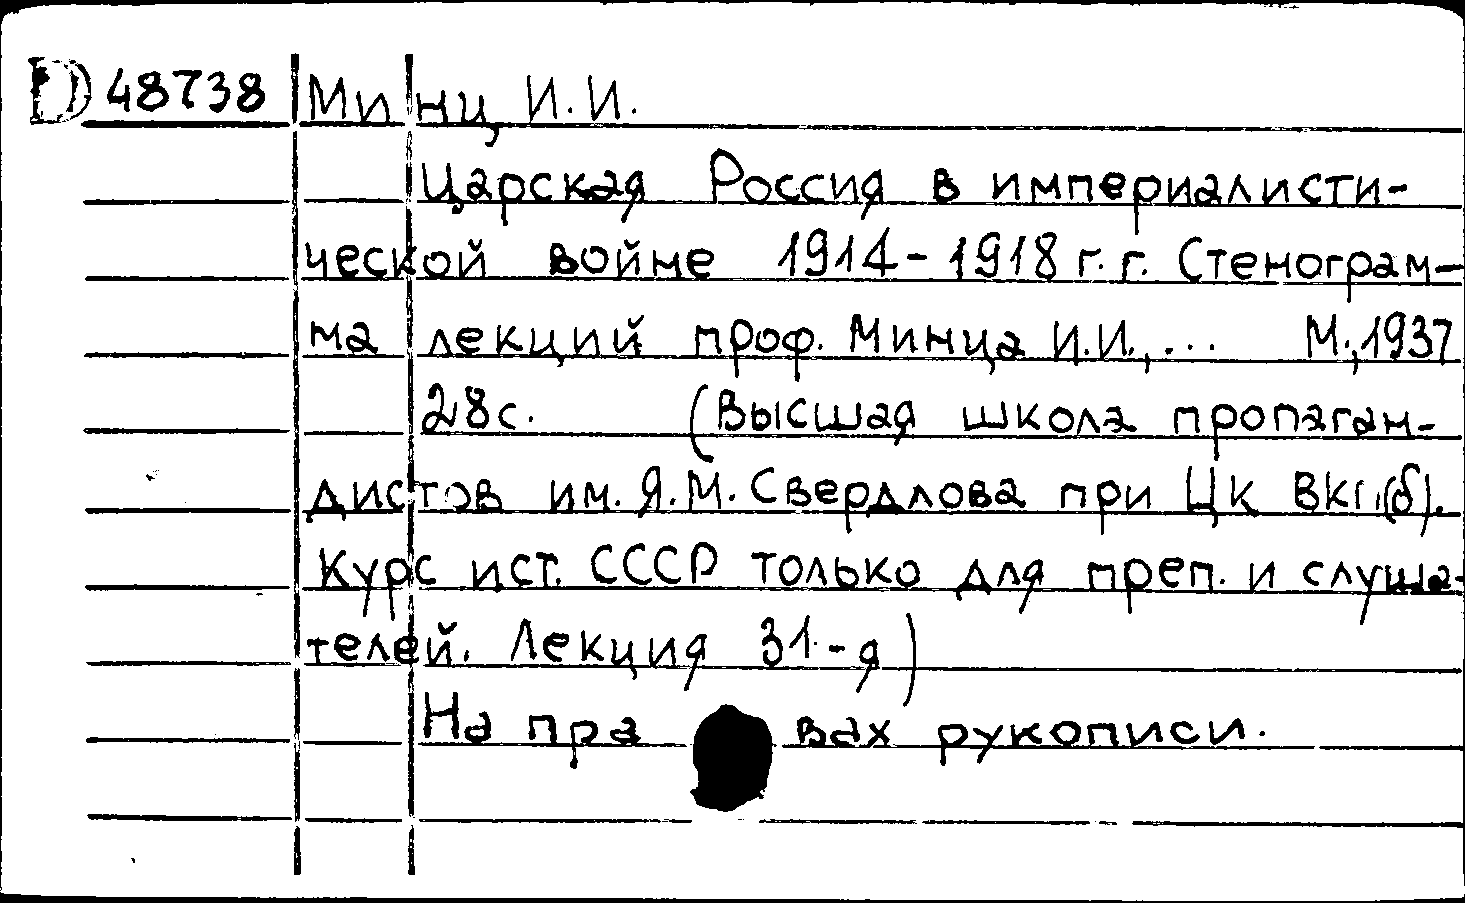 D 48738 Минц И.И.
Царская Россия в империалисти-
ческой войне 1914-1918 г.г. Стенограм-
ма лекций проф. Минца И.И.,... М.,1937
28с. (Высшая школа пропаган-
дистов им. Я.М. Свердлова при ЦК ВКП(б).
Курс ист. СССР только для преп. и слуша-
телей. Лекция 31-я)
На правах рукописи.